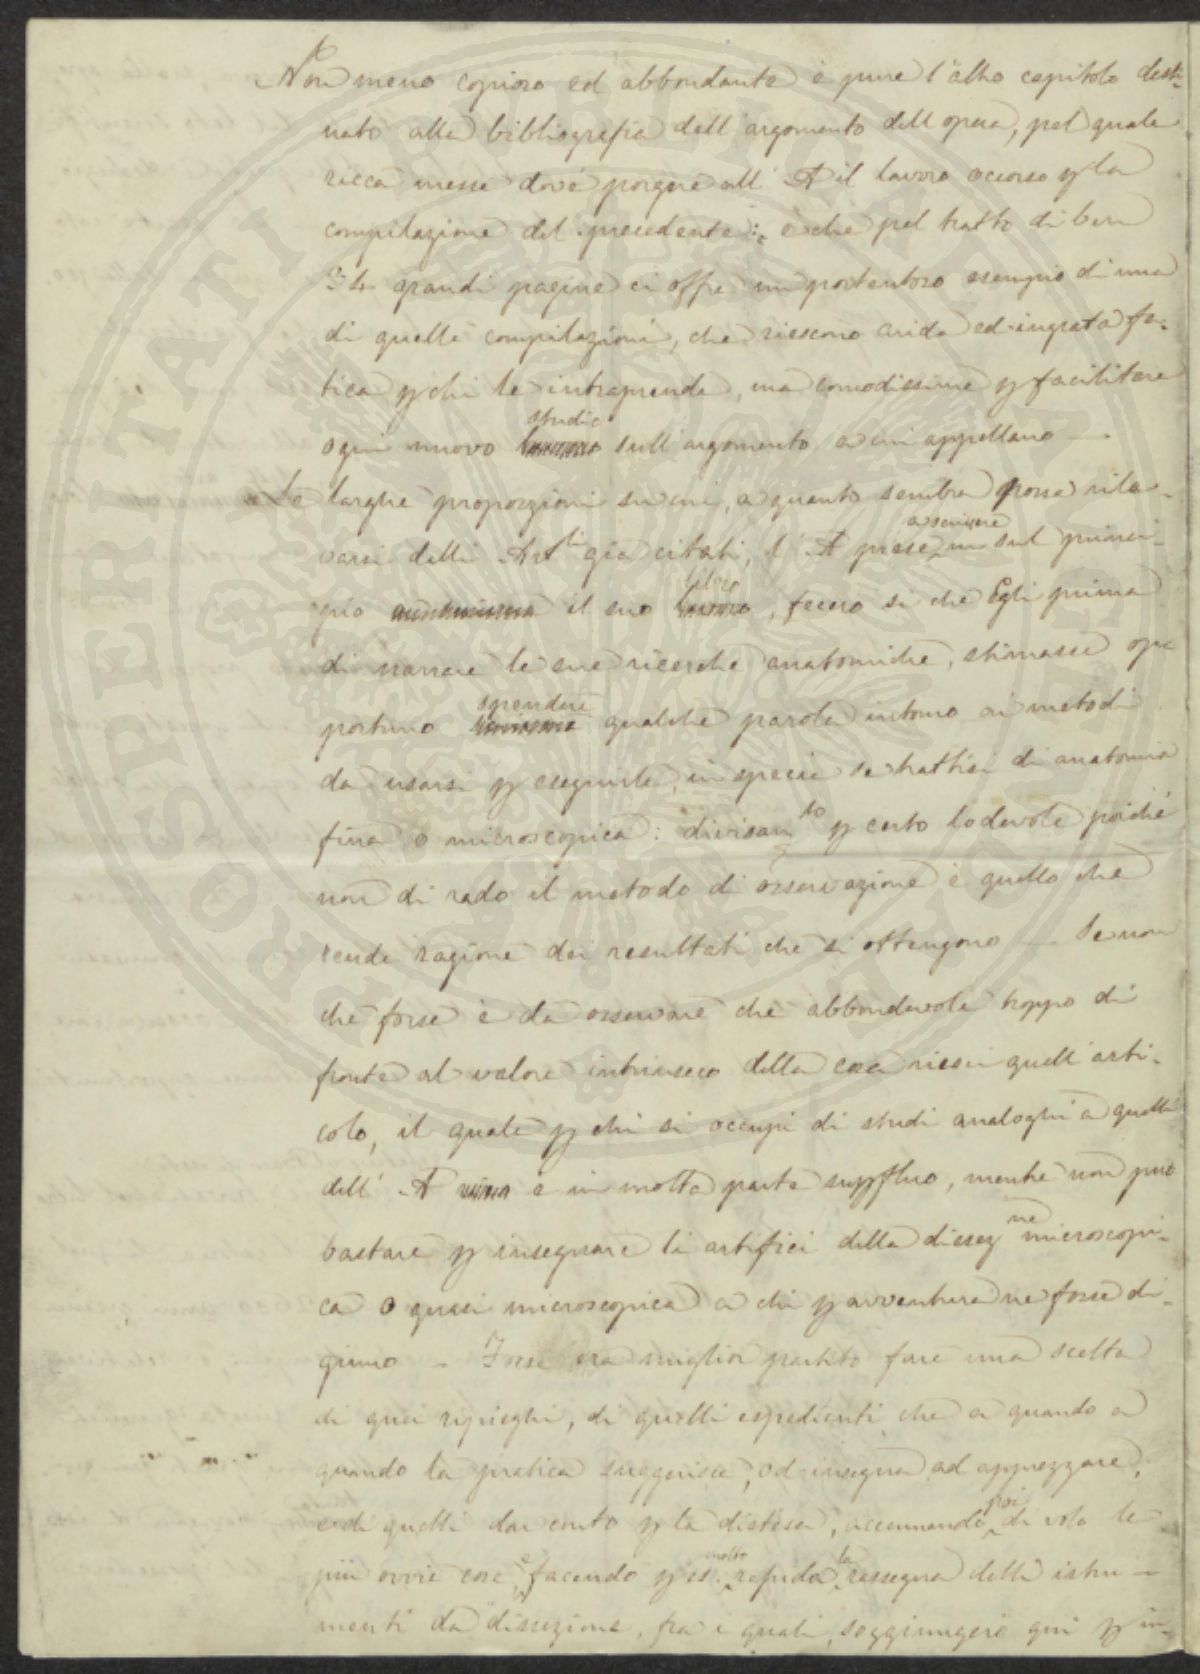 Non meno copioso ed abbondante è pure l'altro capitolo desti-
nato alla bibliografia dell'argomento dell'opera, pel quale
ricca messe dové porgere all' A il lavoro occorso p la
compilazione del precedente: e che pel tratto di ben
34 grandi pagine ci offre un portentoso esempio di una
di quelle compilazioni, che riescono arida ed ingrata fa-
tica p chi le intraprende, ma comodissime p facilitare
studio
ogni nuovo sull'argomento a cui appellano —.
Le larghe proporzioni su cui, a quanto sembra possa rile-
varsi dalli Artli già citati, l' A prese in sul princi-
a scrivere
pio il suo libro, fecero si che Egli prima
di narrare le sue ricerche anatomiche, stimasse op-
spendere
portuno qualche parola intorno ai metodi
da usarsi p eseguirle, in specie se trattisi di anatomia
fina o microscopica: divisamto p certo lodevole poiché
non di rado il metodo di osservazione è quello che
rende ragione dei resultati che si ottengono — Se non
che forse è da osservare che abbondevole troppo di
fronte al valore intrinseco della cosa riesci quell'arti-
colo, il quale p chi si occupi di studi analoghi a quelli
dell' A è in molta parte supfluo, mentre non può
bastare p insegnare li artifici della disseznе microscopi-
ca o quasi microscopica a chi p avventura ne fosse di-
giuno — Forse era miglior partito fare una scelta
di quei ripieghi, di quelli espedienti che a quando a
quando la pratica suggerisce, od insegna ad apprezzare,
e di quelli dar conto p la distesa, accennando poi di volo le
più ovvie cose, e facendo p es. molto rapida la rassegna delli istru-
menti da dissezione, fra i quali, soggiungerò qui p in-